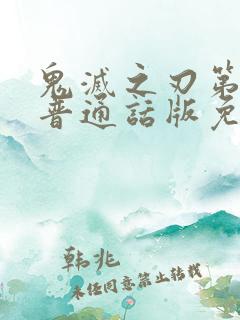 鬼滅之刃第
普通話版免
韩兆
未任同意禁止转载